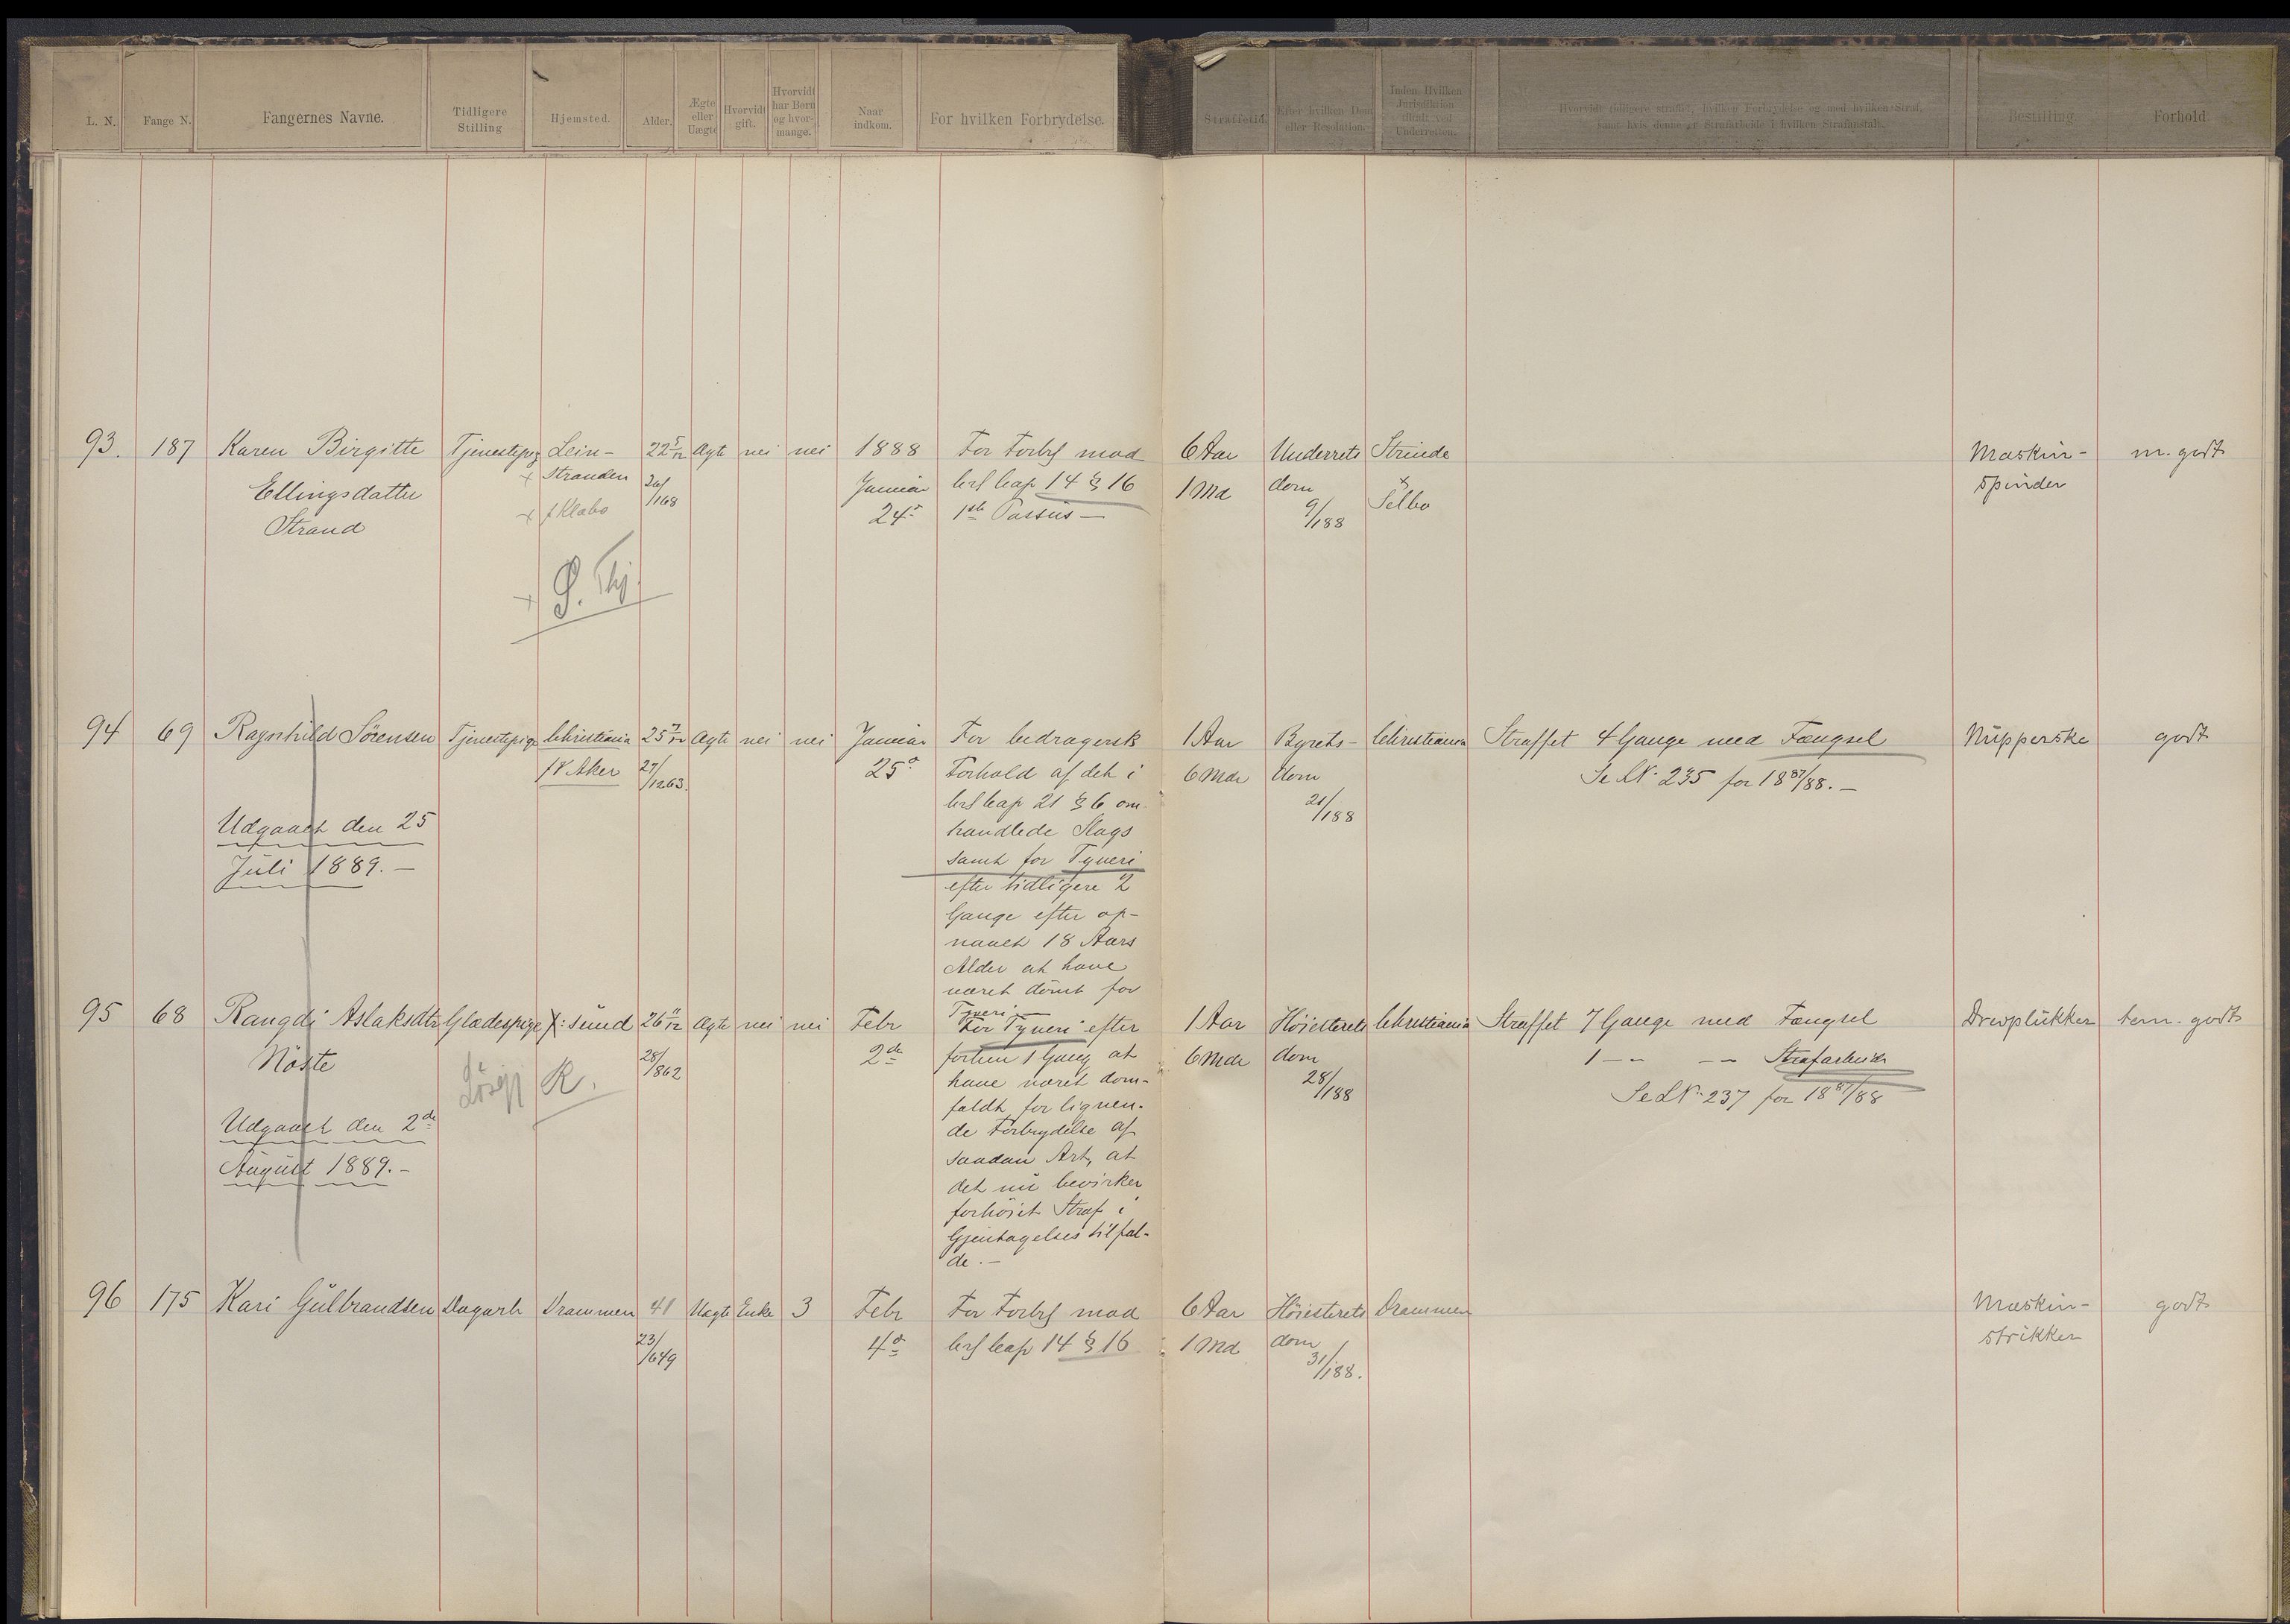 L. N.
Fange N.
Fangernes Navne.
Tidligere
Stilling
Hjemsted.
Alder.
Ægte
eller
Uægte
Hvorvidt
gift.
Hvorvidt
har Børn
og hvor-
mange.
Naar
indkom.
For hvilken Forbrydelse.
Straffetid.
Efter hvilken Dom
eller Resolution.
Inden Hvilken
Jurisdiktion
tiltalt ved
Underretten.
Hvorvidt tidligere straffet, hvilken Forbrydelse og med hvilken Straf,
samt hvis denne er Strafarbeide i hvilken Strafanstalt.
Bestilling.
Forhold
93.
187
Karen Birgitte
Ellingsdatter
Strand
Tjenestepig
Lein-
stranden
f Klæbo
S. Thj.
22 5/12
26/168
Ægte
nei
nei
1888
Januar
24
For Forbr mod
Crl Cap 14 § 16
1ste Passus —
6 Aar
1 Md
Underrets
dom
9/188
Strinde
Selbo
Maskin-
spinder
m. godt
94
69
Ragnhild Sörensen
Udgaaet den 25
Juli 1889. —
Tjenestepige
Christiania
f V Aker
25 7/12
27/1263.
Ægte
nei
nei
Januar
25
For bedragersk
Forhold af det i
Crl Cap 21 § 6 om-
handlede Slags
samt for Tyveri
efter tidligere 2
Gange efter op-
naaet 18 Aars
Alder at have
været dömt for
Tyveri —
1 Aar
6 Mdr
Byrets-
dom
21/188
Christiania
Straffet 4 Gange med Fængsel
Se LN. 235 for 18 87/88. —
Nüpperske
godt
95
68
Rangdi Aslaksdtr
Nöste
Udgaaet den 2de
August 1889. —
Glædespige
Lösgj
X: sund
R.
26 11/12
28/862
Ægte
nei
nei
Febr
2de
For Tyveri efter
forhen 1 Gang at
have været dom-
fældt for lignen-
de Forbrydelse af
saadan Art, at
det nu bevirker
forhöiet Straf i
Gjentagelsestilfæl-
de. —
1 Aar
6 Mdr
Höiesterets
dom
28/188
Christiania
Straffet 7 Gange med Fængsel
1 — — Strafarbeide
Se LN. 237 for 18 87/88
Drevplukker
tem. godt
96
175
Kari Gulbrandsen
Dagarb
Drammen
41
23/649
Uægte
Enke
3
Febr
4
For Forbr mod
Crl Cap 14 § 16
6 Aar
1 Md
Höiesterets
dom
31/188.
Drammen
Maskin-
strikker
godt